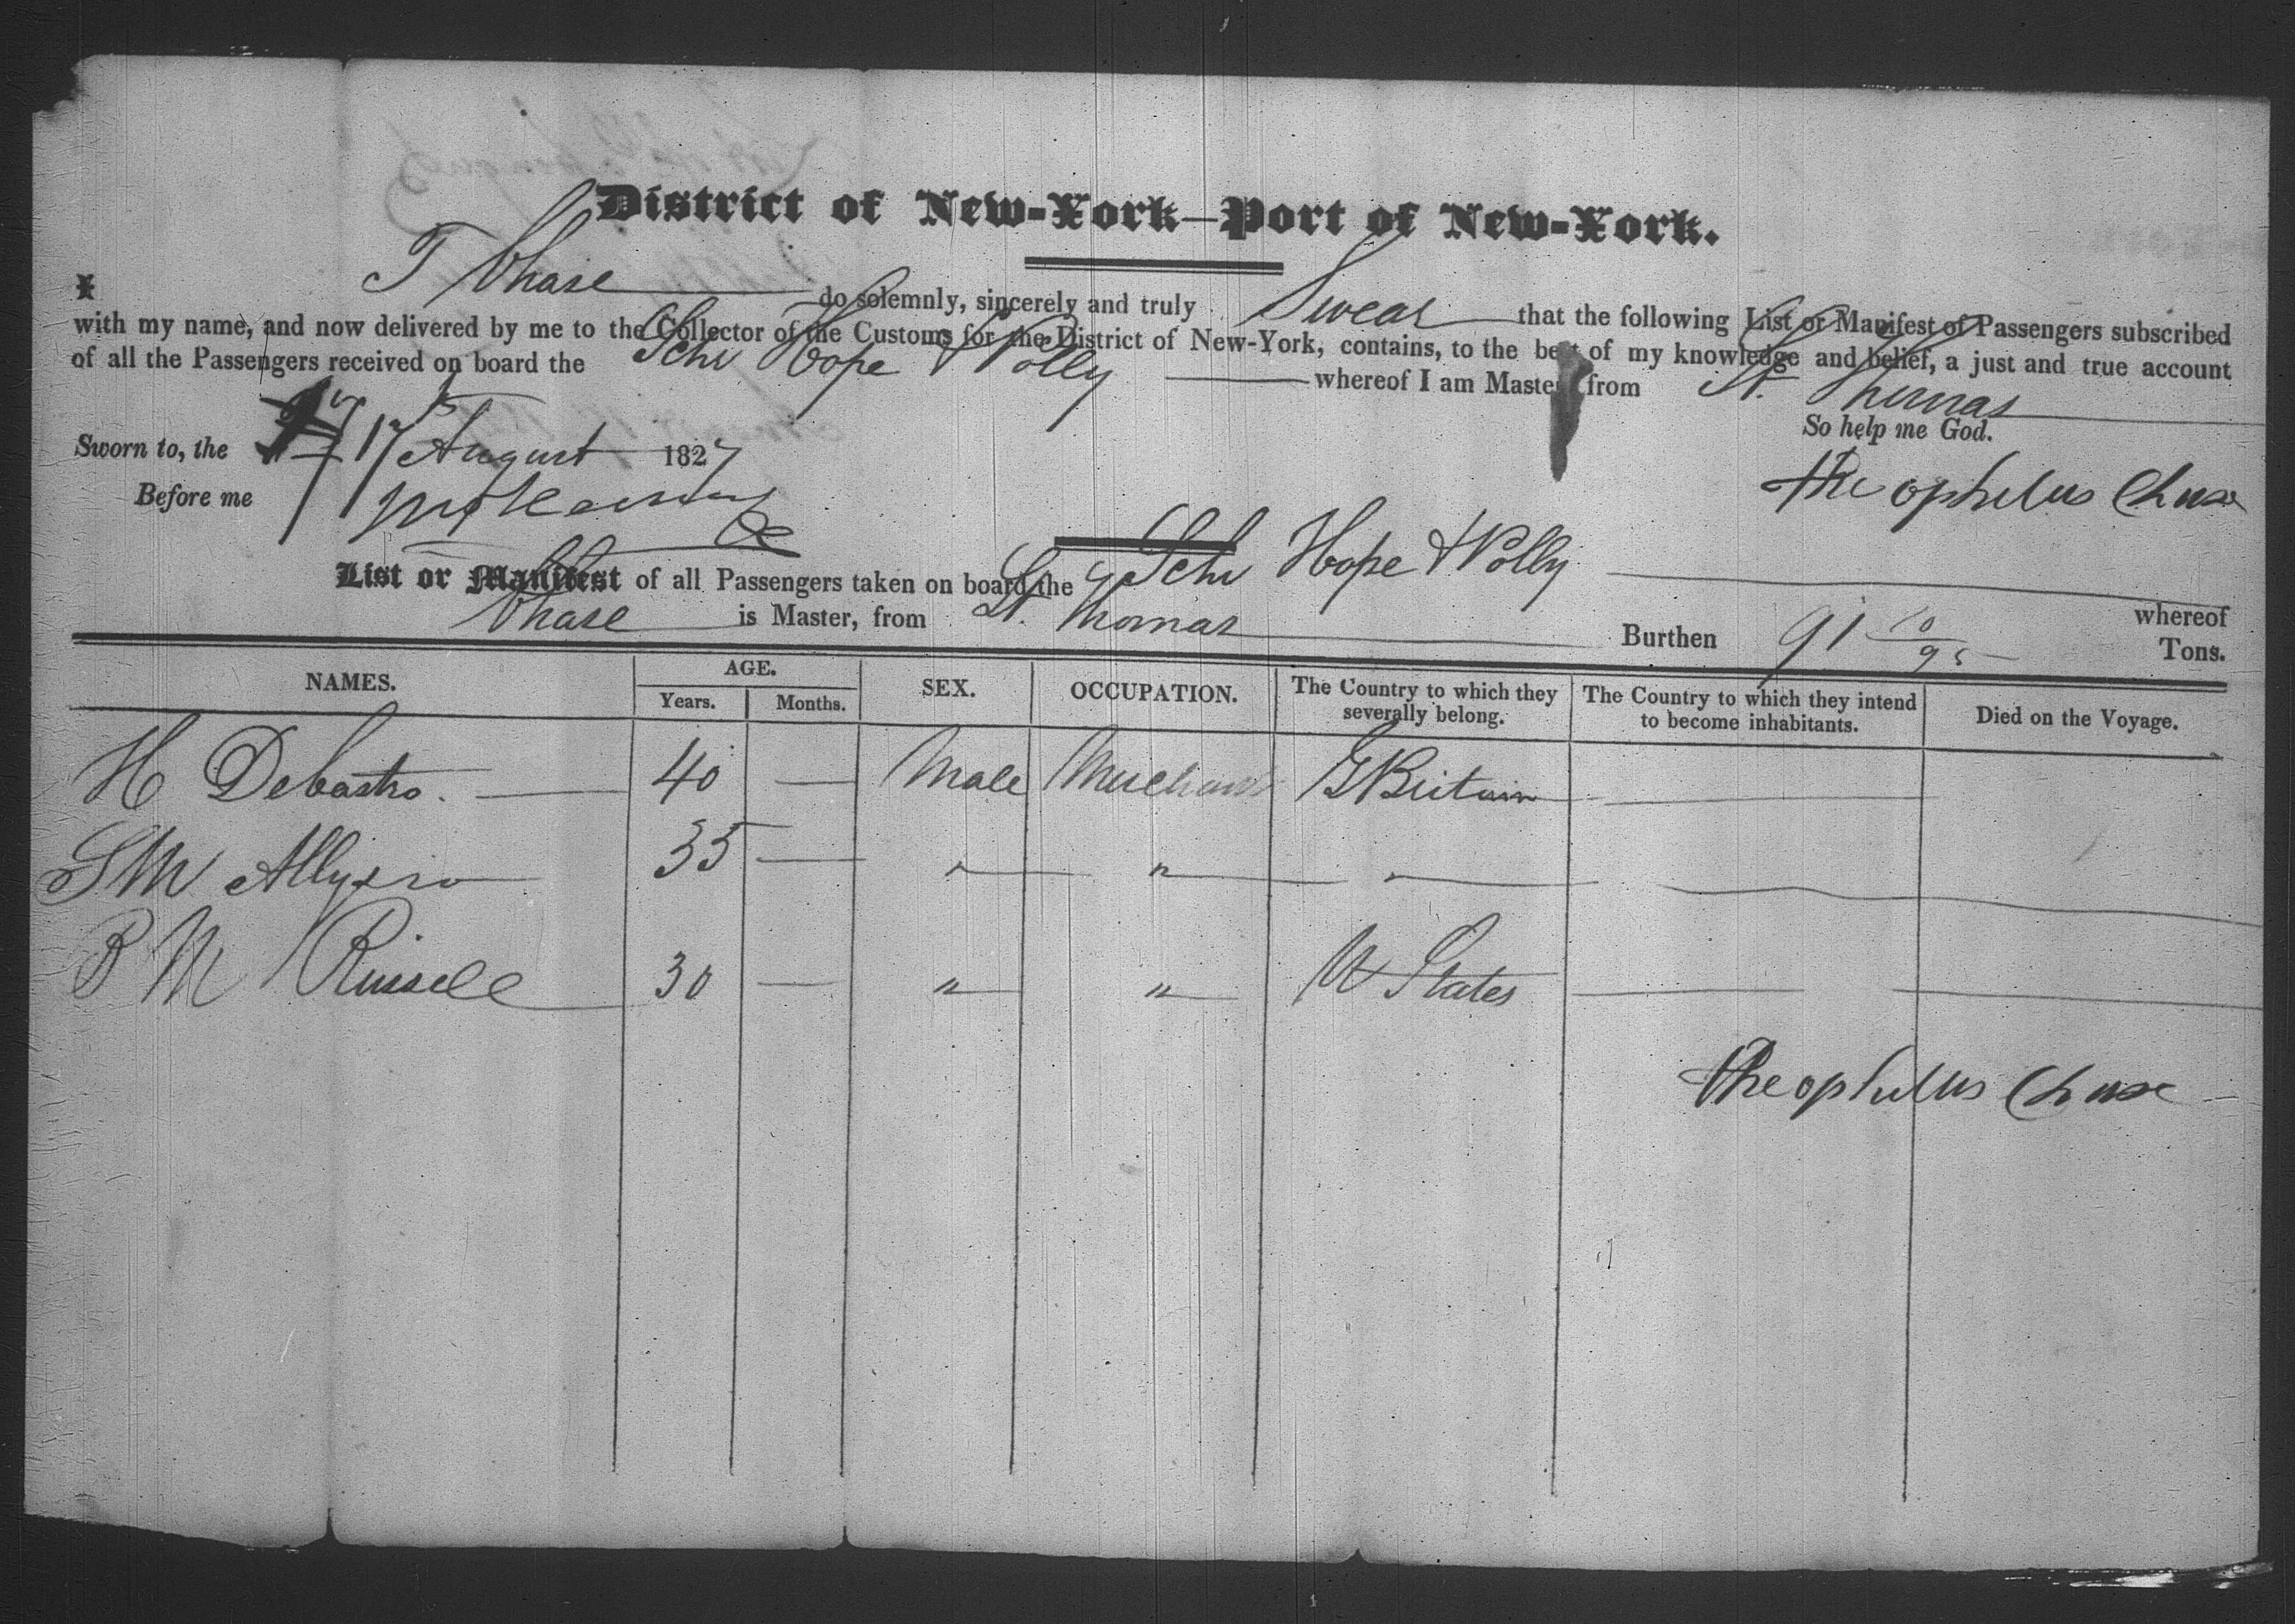 District of New-York—Port of New-York.
I T Chase do solemnly, sincerely and truly Swear that the following List or Manifest of Passengers subscribed
with my name, and now delivered by me to the Collector of the Customs for the District of New-York, contains, to the best of my knowledge and belief, a just and true account
of all the Passengers received on board the Schr Hope & Polly whereof I am Master from St. Thomas
So help me God.
Sworn to, the 17 August 1827
Before me
Theophilus Chase
List or Manifest of all Passengers taken on board the Schr Hope & Polly whereof
Chase is Master, from St. Thomas Burthen 91 10/95 Tons.
NAMES. AGE. SEX. OCCUPATION. The Country to which they severally belong. The Country to which they intend to become inhabitants. Died on the Voyage.
Years. Months.
H Debastro. 40 — Male Merchant G Britain —
S M 35 — " " " —
B M Russell 30 — " " U States —
Theophilus Chase